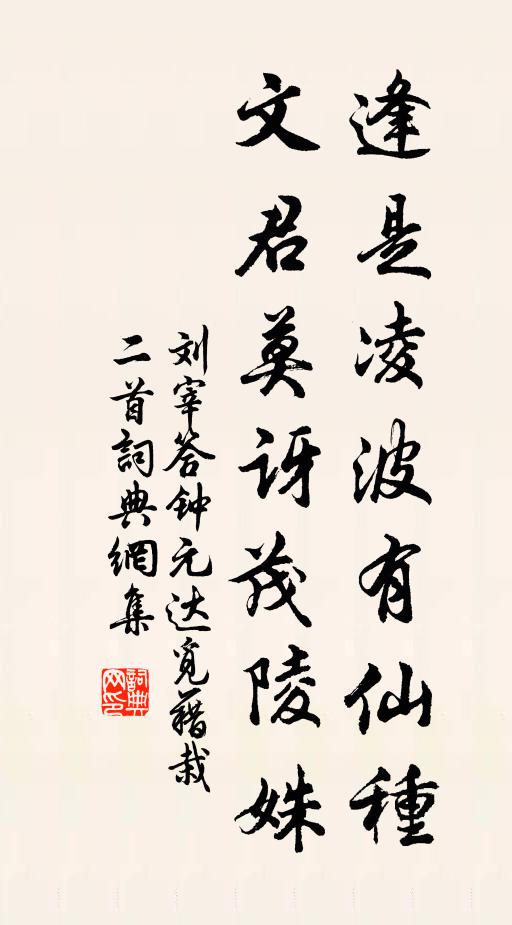 逢是凌波有仙種
文君莫讶茂陵姝
刘宰答钟元达觅藉栽
二首詞典網集
詞典网印